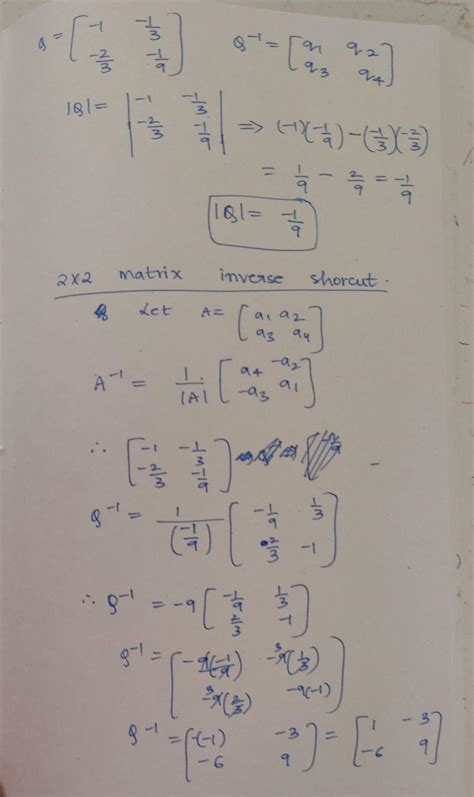 Q = [ -1 -1/3 ; -2/3 -1/9 ] Q⁻¹ = [ q₁ q₂ ; q₃ q₄ ]
|Q| = | -1 -1/3 ; -2/3 -1/9 | ⇒ (-1)(-1/9) - (-1/3)(-2/3)
= 1/9 - 2/9 = -1/9
|Q| = -1/9
2x2 matrix inverse shorcut.
Let A = [ a₁ a₂ ; a₃ a₄ ]
A⁻¹ = 1/|A| [ a₄ -a₂ ; -a₃ a₁ ]
∴ [ -1 -1/3 ; -2/3 -1/9 ]
Q⁻¹ = 1/(-1/9) [ -1/9 1/3 ; 2/3 -1 ]
∴ Q⁻¹ = -9 [ -1/9 1/3 ; 2/3 -1 ]
Q⁻¹ = [ -9(-1/9) -9³(1/3) ; -9³(2/3) -9(-1) ]
Q⁻¹ = [ -(-1) -3 ; -6 9 ] = [ 1 -3 ; -6 9 ]